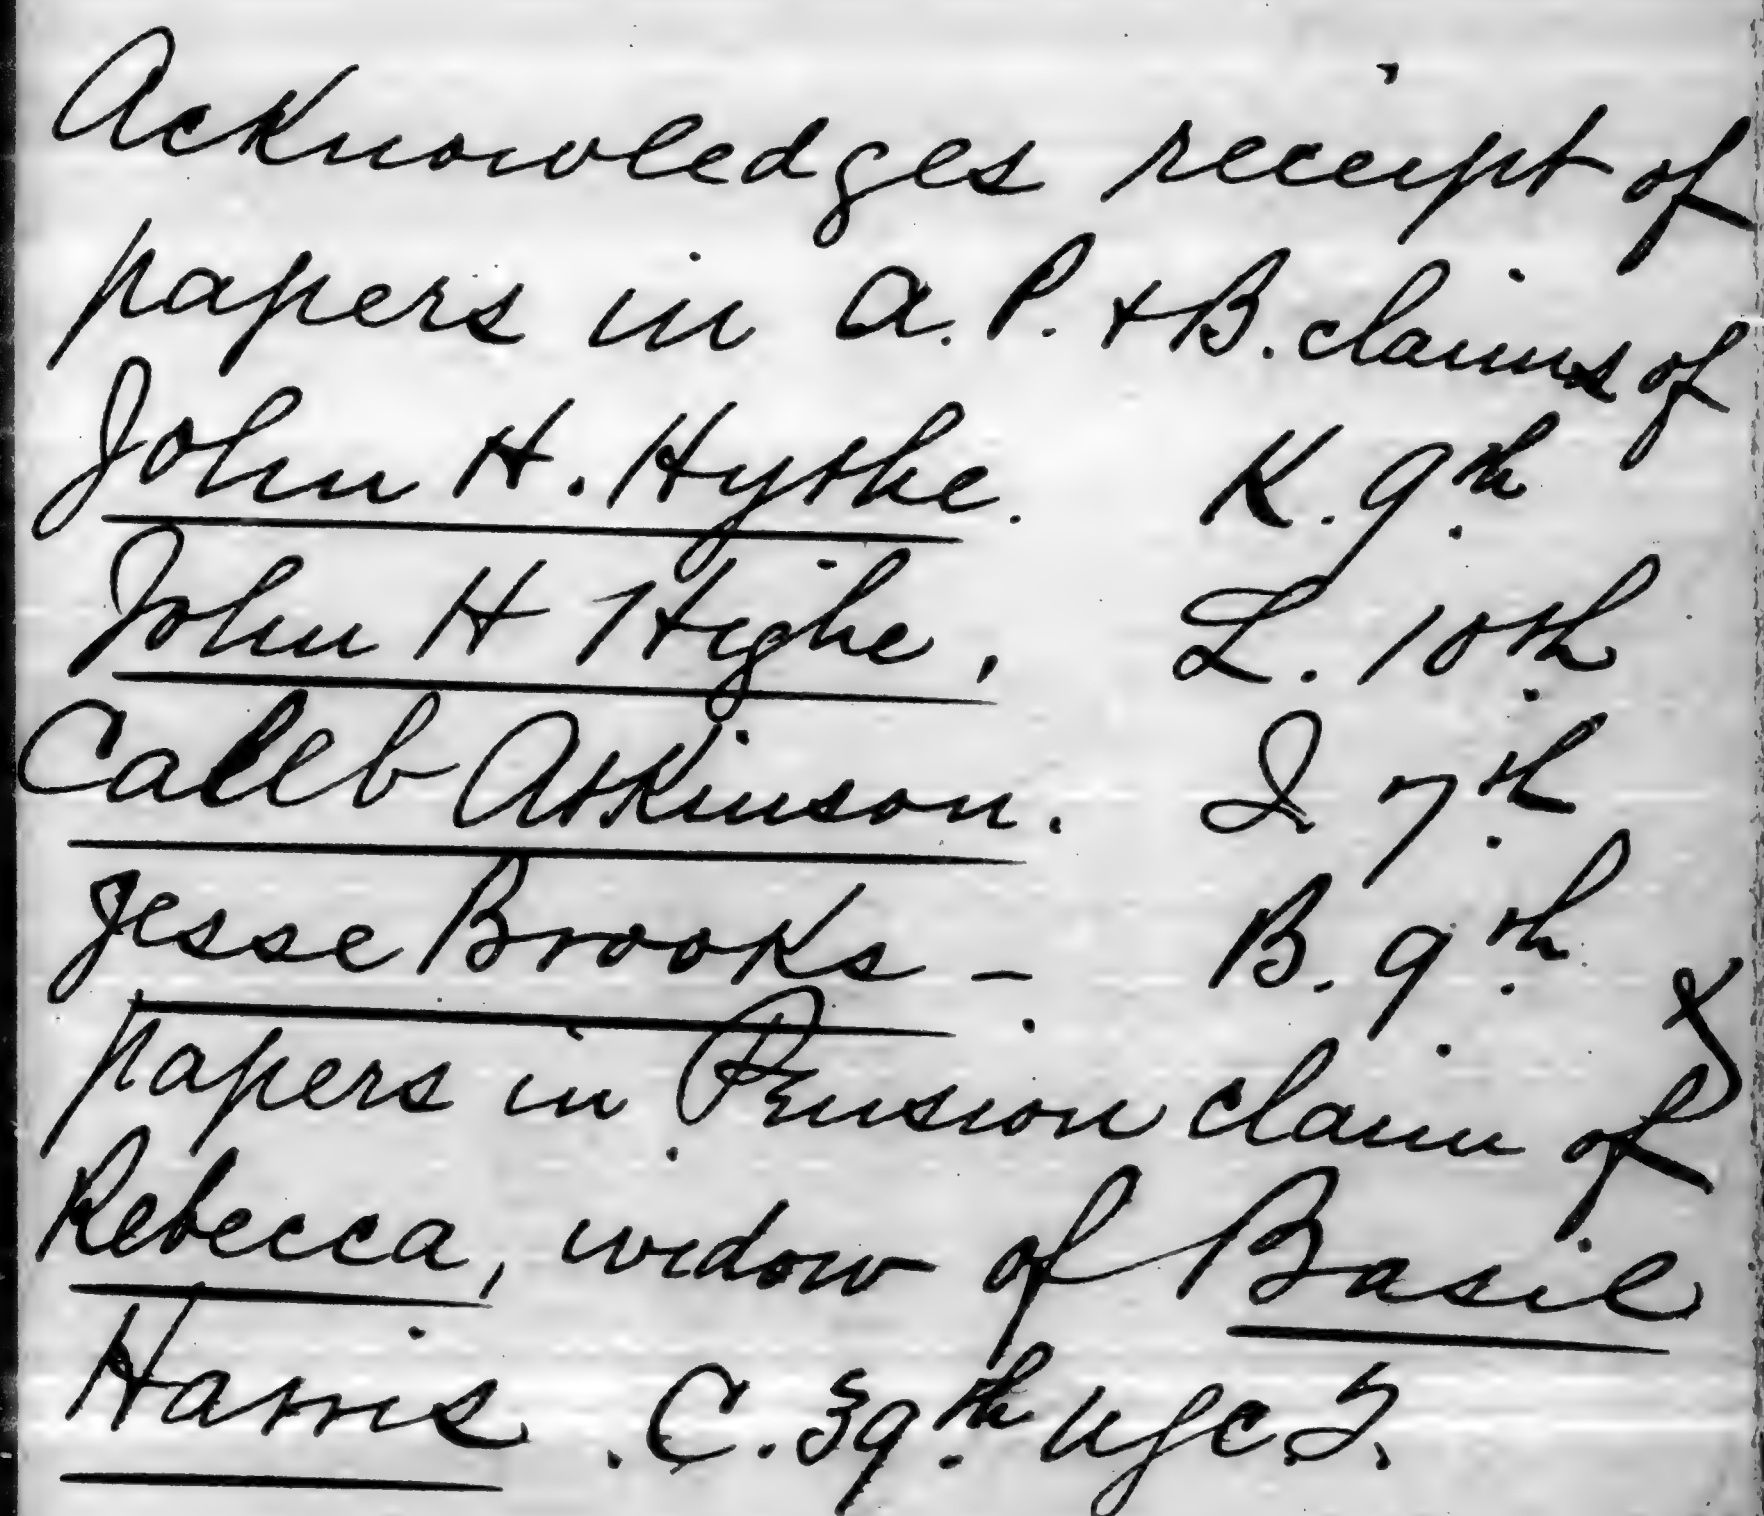 Acknowledges receipt of
papers in A. P. + B. claims of
John H. Hythe. K. 9th
John H Highe, L. 10th
Caleb Atkinson. I 7th
Jesse Brooks - B. 9th &
papers in Pension claim of
Rebecca, widow of Basil
Harris. C. 39th USCT.